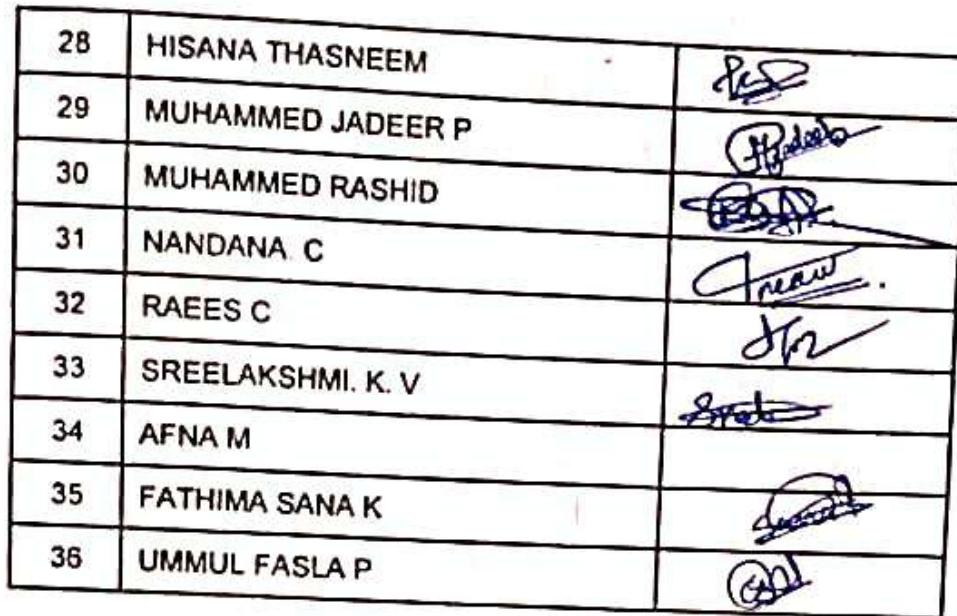 28 HISANA THASNEEM
29 MUHAMMED JADEER P
30 MUHAMMED RASHID
31 NANDANA. C
32 RAEES C
33 SREELAKSHMI. K. V
34 AFNA M
35 FATHIMA SANA K
36 UMMUL FASLA P